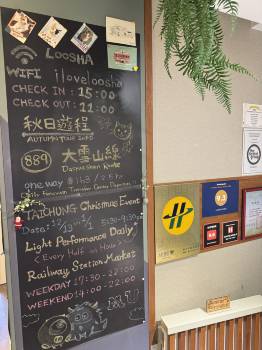 LOOSHA
WIFI iloveloosha
CHECK IN : 15:00
CHECK OUT : 11:00
秋日遊程
AUTUMN TOUR INFO
889 大雪山線
Daxueshan Route
one way
TAICHUNG Christmas Event
Light Performance Daily
< Every Half an Hour >
Railway Station Market
WEEKDAY 17:30 - 22:00
WEEKEND 14:00 - 22:00